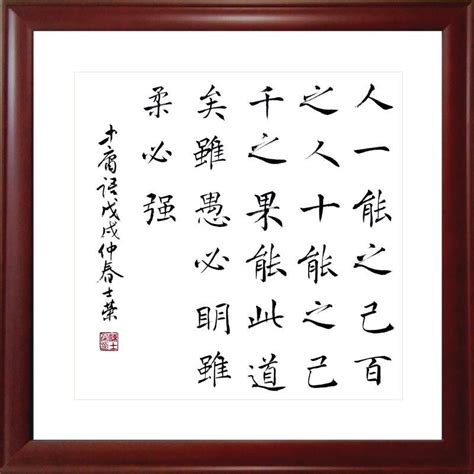 人一能之己百
之人十能之己
千之果能此道
矣雖愚必明雖
柔必强
中庸语戊戌仲春士荣